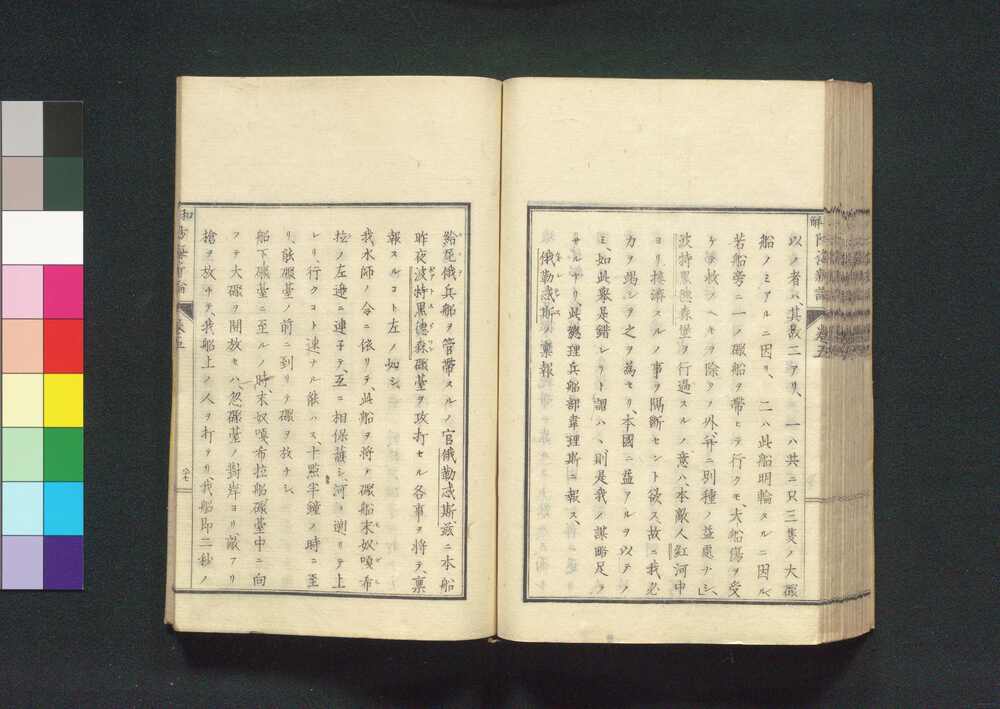 以ノ者ハ、其故二アリ、一ハ共ニ只三隻ノ大礟
船ノミアルニ因リ、二ハ此船明輪タルニ因ル、
若船旁ニ一ノ礟船ヲ帶ヒテ行クモ、大船傷ヲ受
ケ急救フヘキヲ除クノ外、並ニ別種ノ益處ナシ、」
波特黒德森堡ヲ行過スルノ意ハ、本敵人紅河中
ヨリ接濟スルノ事ヲ隔斷セント欲ス故ニ我必
力ヲ竭シテ之ヲ為セリ、本國ニ益アルヲ以テノ
ミ、如此舉是錯レリト謂ハヽ、則是我ノ謀略足ラ
サルナリ、此總理兵船部韋理斯ニ報ス、
俄勒感斯ノ稟報
給尼俄兵船ヲ管帶スルノ官俄勒感斯、茲ニ本船
昨夜波特黒德森礟臺ヲ攻打セル各事ヲ將テ、稟
報スルコト左ノ如シ、
我水師ノ令ニ依リテ、此船ヲ將テ礟船末奴嗄布
拉ノ左邊ニ連子テ、互ニ相保護シ、河ヲ遡リテ上
レリ、行クコト速ナル能ハス、十點半鐘ノ時ニ至
リ、敵礟臺ノ前ニ到リテ礟ヲ放チシ
船下礟臺ニ至ルノ時、末奴嗄布拉船礟臺中ニ向
フテ大礟ヲ開放セハ、忽礟臺ノ對岸ヨリ敵アリ
槍ヲ放チテ、我船上ノ人ヲ打テリ、我船即二秒ノ
防海新論
卷五
六十七